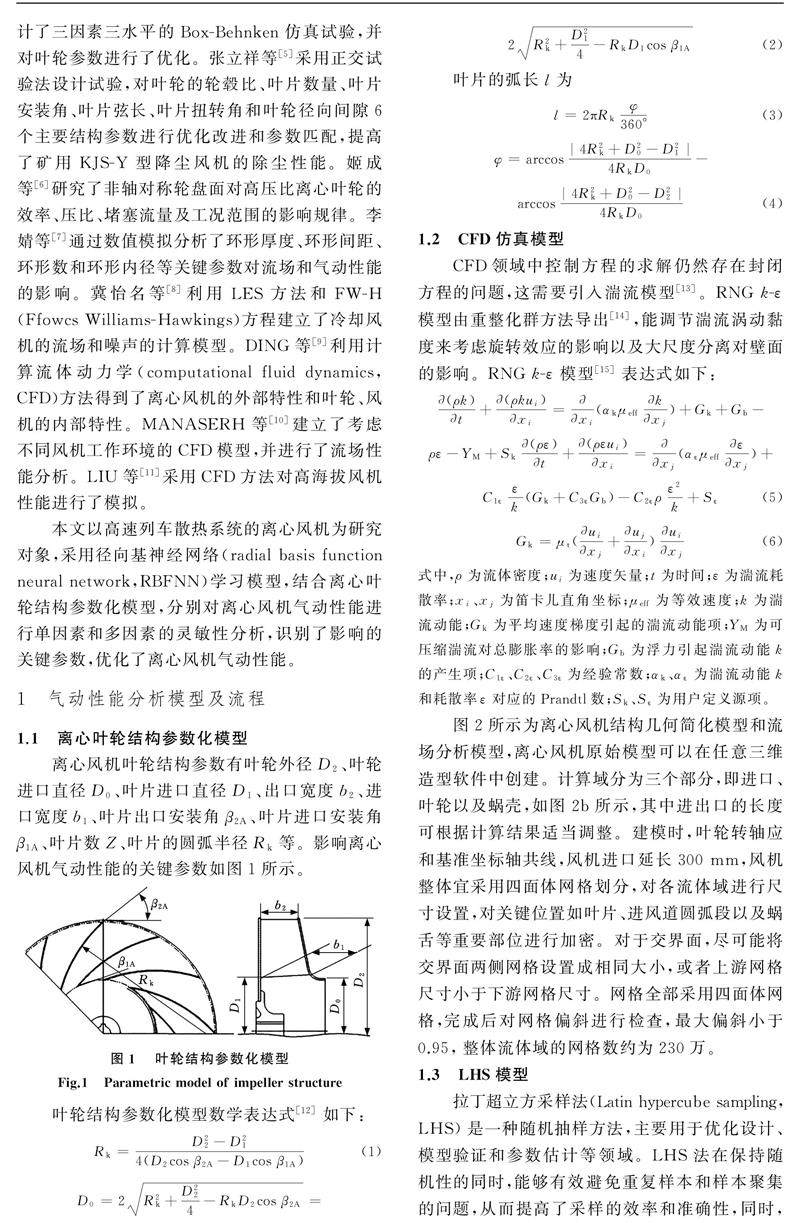 计了三因素三水平的 Box-Behnken 仿真试验,并
对叶轮参数进行了优化。张立祥等[5]采用正交试
验法设计试验,对叶轮的轮毂比、叶片数量、叶片
安装角、叶片弦长、叶片扭转角和叶轮径向间隙 6
个主要结构参数进行优化改进和参数匹配,提高
了矿用 KJS-Y 型降尘风机的除尘性能。姬成
等[6]研究了非轴对称轮盘面对高压比离心叶轮的
效率、压比、堵塞流量及工况范围的影响规律。李
婧等[7]通过数值模拟分析了环形厚度、环形间距、
环形数和环形内径等关键参数对流场和气动性能
的影响。冀怡名等[8]利用 LES 方法和 FW-H
(Ffowcs Williams-Hawkings)方程建立了冷却风
机的流场和噪声的计算模型。DING 等[9]利用计
算流体动力学(computational fluid dynamics,
CFD)方法得到了离心风机的外部特性和叶轮、风
机的内部特性。MANASERH 等[10]建立了考虑
不同风机工作环境的 CFD 模型,并进行了流场性
能分析。LIU 等[11]采用 CFD 方法对高海拔风机
性能进行了模拟。
本文以高速列车散热系统的离心风机为研究
对象,采用径向基神经网络(radial basis function
neural network,RBFNN)学习模型,结合离心叶
轮结构参数化模型,分别对离心风机气动性能进
行单因素和多因素的灵敏性分析,识别了影响的
关键参数,优化了离心风机气动性能。
1 气动性能分析模型及流程
1.1 离心叶轮结构参数化模型
离心风机叶轮结构参数有叶轮外径 D₂、叶轮
进口直径 D₀、叶片进口直径 D₁、出口宽度 b₂、进
口宽度 b₁、叶片出口安装角 β2A、叶片进口安装角
β1A、叶片数 Z、叶片的圆弧半径 Rk 等。影响离心
风机气动性能的关键参数如图 1 所示。
β2A
β1A
Rk
b₂
b₁
D₁
D₀
D₂
图 1 叶轮结构参数化模型
Fig.1 Parametric model of impeller structure
叶轮结构参数化模型数学表达式[12] 如下:
Rk = (D₂² − D₁²) / (4(D₂cos β2A − D₁cos β1A)) (1)
D₀ = 2√(Rk² + D₂²/4 − RkD₂cos β2A) =
2√(Rk² + D₁²/4 − RkD₁cos β1A) (2)
叶片的弧长 l 为
l = 2πRk φ/360° (3)
φ = arccos |4Rk² + D₀² − D₁²| / (4RkD₀) −
arccos |4Rk² + D₀² − D₂²| / (4RkD₀) (4)
1.2 CFD 仿真模型
CFD 领域中控制方程的求解仍然存在封闭
方程的问题,这需要引入湍流模型[13]。RNG k-ε
模型由重整化群方法导出[14],能调节湍流涡动黏
度来考虑旋转效应的影响以及大尺度分离对壁面
的影响。RNG k-ε 模型[15] 表达式如下:
∂(ρk)/∂t + ∂(ρkui)/∂xi = ∂/∂xi (αkμeff ∂k/∂xj) + Gk + Gb −
ρε − YM + Sk ∂(ρε)/∂t + ∂(ρεui)/∂xi = ∂/∂xj (αεμeff ∂ε/∂xj) +
C1ε ε/k (Gk + C3εGb) − C2ερ ε²/k + Sε (5)
Gk = μt(∂ui/∂xj + ∂uj/∂xi) ∂ui/∂xj (6)
式中,ρ 为流体密度;ui 为速度矢量;t 为时间;ε 为湍流耗
散率;xi、xj 为笛卡儿直角坐标;μeff 为等效速度;k 为湍
流动能;Gk 为平均速度梯度引起的湍流动能项;YM 为可
压缩湍流对总膨胀率的影响;Gb 为浮力引起湍流动能 k
的产生项;C1ε、C2ε、C3ε 为经验常数;αk、αε 为湍流动能 k
和耗散率 ε 对应的 Prandtl 数;Sk、Sε 为用户定义源项。
图 2 所示为离心风机结构几何简化模型和流
场分析模型,离心风机原始模型可以在任意三维
造型软件中创建。计算域分为三个部分,即进口、
叶轮以及蜗壳,如图 2b 所示,其中进出口的长度
可根据计算结果适当调整。建模时,叶轮转轴应
和基准坐标轴共线,风机进口延长 300 mm,风机
整体宜采用四面体网格划分,对各流体域进行尺
寸设置,对关键位置如叶片、进风道圆弧段以及蜗
舌等重要部位进行加密。对于交界面,尽可能将
交界面两侧网格设置成相同大小,或者上游网格
尺寸小于下游网格尺寸。网格全部采用四面体网
格,完成后对网格偏斜进行检查,最大偏斜小于
0.95,整体流体域的网格数约为 230 万。
1.3 LHS 模型
拉丁超立方采样法(Latin hypercube sampling,
LHS) 是一种随机抽样方法,主要用于优化设计、
模型验证和参数估计等领域。LHS 法在保持随
机性的同时,能够有效避免重复样本和样本聚集
的问题,从而提高了采样的效率和准确性,同时,